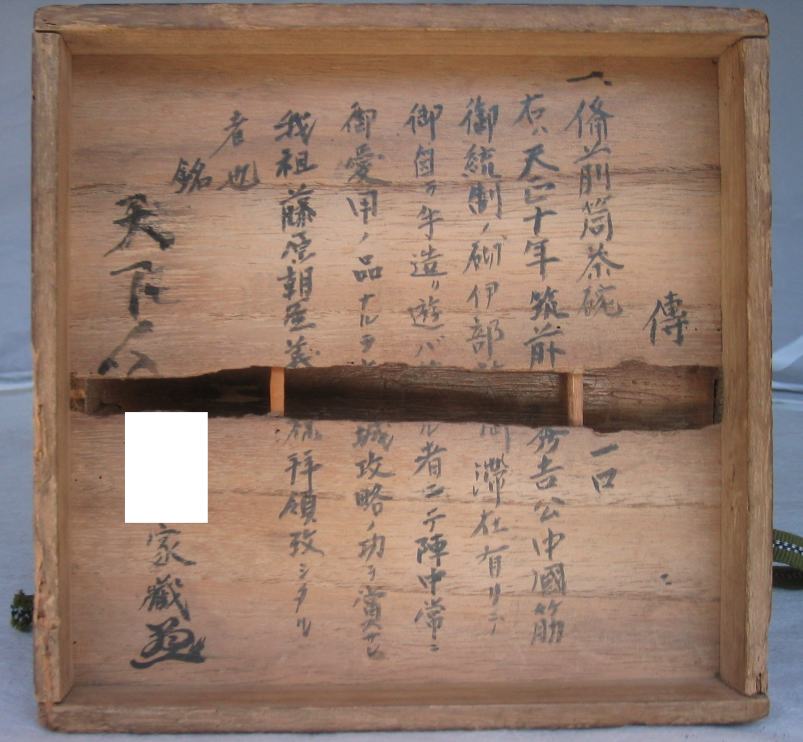 傳
一、備前筒茶碗 一口
右ハ天正十年筑前 秀吉公中國筋
御統制ノ砌伊部 御滞在有リテ
御自ラ手造リ遊バ ル者ニテ陣中常ニ
御愛用ノ品ナルヲ 城攻略ノ功ヲ賞サレ
我祖藤原朝臣義 拝領致シタル
者也
銘
天下
家藏